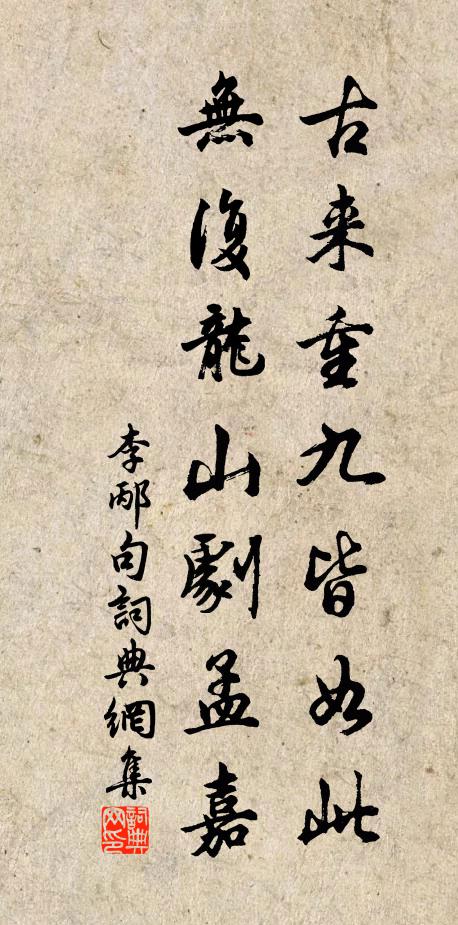 古来重九皆如此
無復龍山劇孟嘉
李邴句詞典網集
詞典網印